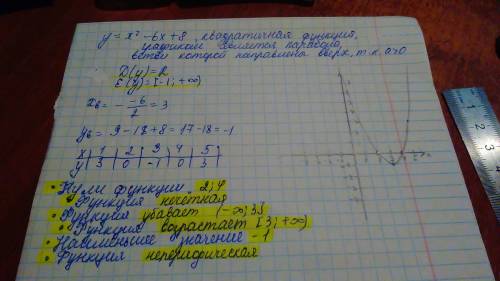 y = x² - 6x + 8, квадратичная функция,
графиком является парабола,
ветви которой направлены вверх, т.к. a>0
D(y) = R
E(y) = [-1; +∞)
xв = - -6/2 = 3
yв = 9 - 18 + 8 = 17 - 18 = -1
x 1 2 3 4 5
y 3 0 -1 0 3
• Нули функции 2; 4
• Функция нечетная
• Функция убывает (-∞; 3]
• Функция возрастает [3; +∞)
• Наименьшее значение -1
• Функция непериодическая
1 2 3 4